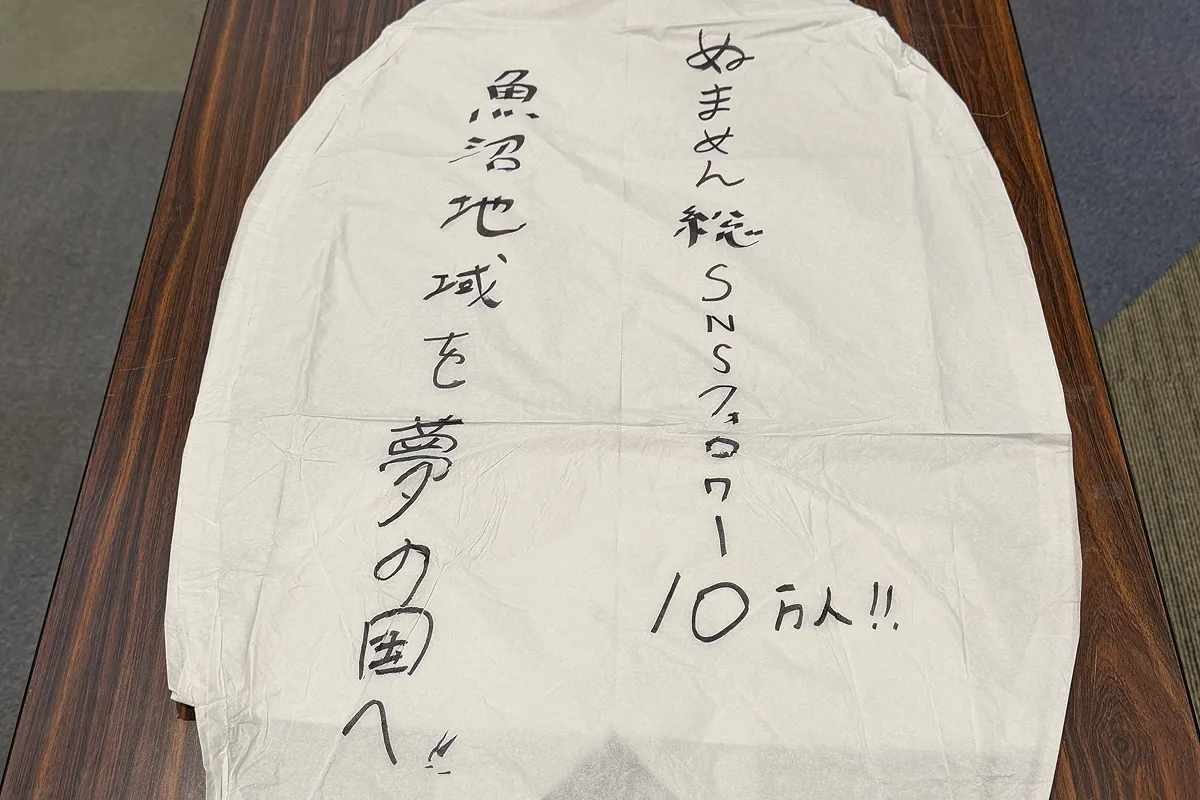 ぬまめん総SNSフォロワー
10万人!!
魚沼地域を夢の国へ!!